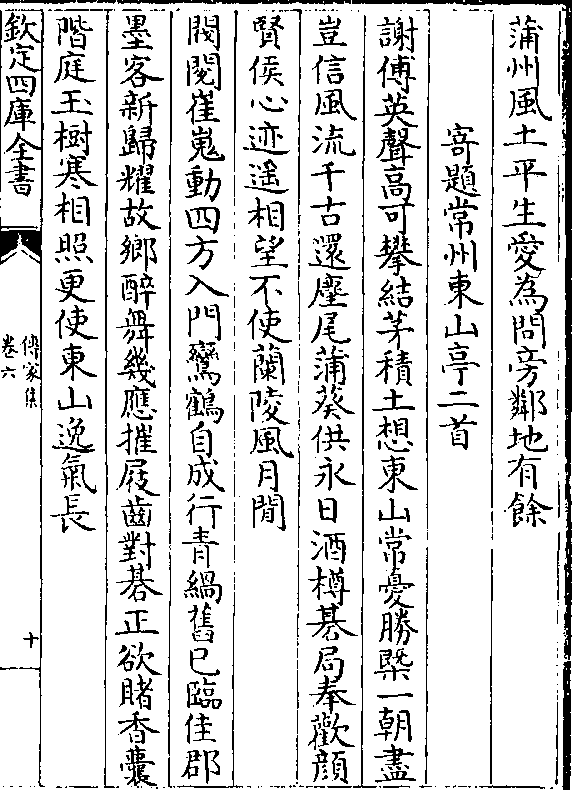 蒲州風土平生愛為問旁鄰地有餘
寄題常州東山亭二首
謝傅英聲髙可攀結茅積土想東山常憂勝槩一朝盡
豈信風流千古還麈尾蒲葵供永日酒樽碁局奉歡顔
賢侯心迹遥相望不使蘭陵風月閒
閥閱崔嵬動四方入門鸞鶴自成行青緺舊已臨佳郡
墨客新歸耀故鄉醉舞幾應摧屐齒對碁正欲賭香囊
階庭玉樹寒相照更使東山逸氣長
欽定四庫全書
傳家集
卷六
十